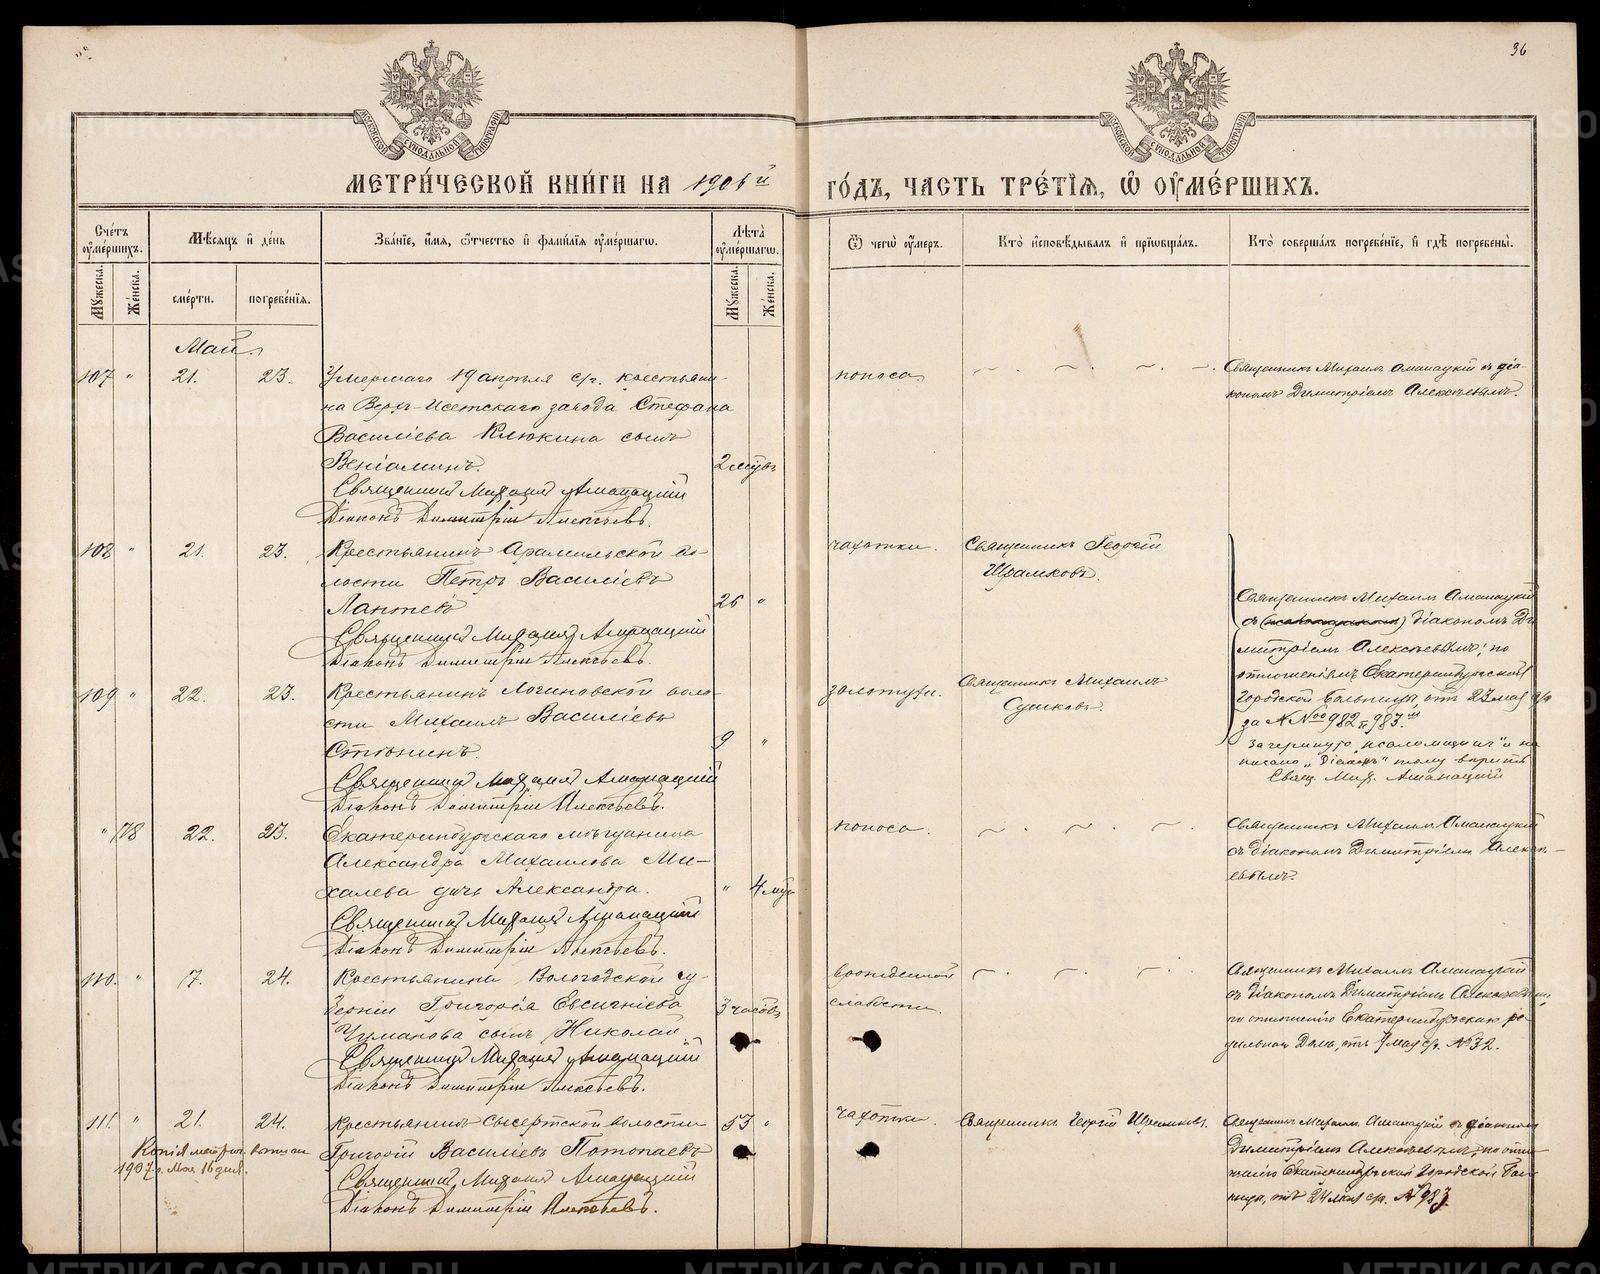 36
МОСКОВСКОЙ СѴНОДАЛЬНОЙ ТИПОГРАФІИ
МОСКОВСКОЙ СѴНОДАЛЬНОЙ ТИПОГРАФІИ
МЕТРИ́ЧЕСКОЙ КНИ́ГИ НА 1906й ГО́ДЪ, ЧАСТЬ ТРЕ́ТІѦ, Ѿ ОУМЕ́РШИХЪ.
Сче́тъ оу҆ме́ршихъ.
Мѣ́сяцъ и҆ де́нь
Зва́нїе, и҆́мя, ѻ҆́тчество и҆ фами́лїя оу҆ме́ршагѡ.
Лѣ́та оу҆ме́ршагѡ.
Ѿ чегѡ̀ оу҆́меръ.
Кто̀ и҆сповѣ́дывалъ и҆ прїѡбща́лъ.
Кто̀ соверша́лъ погребе́нїе, и҆ гдѣ̀ погребены̀.
Мꙋ́жеска.
Же́нска.
сме́рти.
погребе́нїя.
Мꙋ́жеска.
Же́нска.
Май.
107 " 21. 23. Умершаго 19 апрѣля с/г. крестьяни-
на Верх-Исетскаго завода Стефана
Василіева Клюкина сынъ
Веніаминъ.
2 мѣс.
Священникъ Михаилъ Аманацкій
Діаконъ Димитрій Алексѣевъ.
поноса.
Священникъ Михаилъ Аманацкій съ діа-
кономъ Димитріемъ Алексѣевымъ.
108 " 21. 23. Крестьянинъ Арамильской во-
лости Петръ Василіевъ
Лаптевъ
26 "
Священникъ Михаилъ Аманацкій
Діаконъ Димитрій Алексѣевъ.
чахотки.
Священникъ Георгій
Шрамковъ.
Священникъ Михаилъ Аманацкій
съ діакономъ Ди-
митріемъ Алексѣевымъ; по
отношеніямъ Екатеринбургской
городской больницы, отъ 23 мая с/г
за №№ 982 и 983.
Зачеркнуто „псаломщик" и на-
писано „діакон" тому вѣрить
Свящ. Мих. Аманацкій
109 " 22. 23. Крестьянинъ Логиновской воло-
сти Михаилъ Василіевъ
9 "
Священникъ Михаилъ Аманацкій
Діаконъ Димитрій Алексѣевъ.
золотухи.
Священникъ Михаилъ
Сушковъ.
" 178 22. 23. Екатеринбургскаго мѣщанина
Александра Михаилова Ми-
халева дочь Александра.
" 4 мѣс
Священникъ Михаилъ Аманацкій
Діаконъ Димитрій Алексѣевъ.
поноса.
Священникъ Михаилъ Аманацкій
съ діакономъ Димитріемъ Алексѣ-
евымъ.
110. " 7. 24. Крестьянина Вологодской гу-
берніи Григорія Евсигніева
Чумакова сынъ Николай
3 часовъ
Священникъ Михаилъ Аманацкій
Діаконъ Димитрій Алексѣевъ.
врожденной
слабости.
Священникъ Михаилъ Аманацкій
съ діакономъ Димитріемъ Алексѣевымъ,
по отношенію Екатеринбургскаго ро-
дильнаго Дома, отъ 7 мая с/г. № 32.
111. " 21. 24. Крестьянинъ Сысертской волости
Григорій Василіевъ Потопаевъ
53 "
Копія метрич. выдан
1907 г. Мая 16 дня.
Священникъ Михаилъ Аманацкій
Діаконъ Димитрій Алексѣевъ.
чахотки.
Священникъ Георгій Шрамковъ.
Священникъ Михаилъ Аманацкій съ діакономъ
Димитріемъ Алексѣевымъ, по отно-
шенію Екатеринбургской Городской Боль-
ницы, отъ 24 мая с/г. № 987.
METRIKI.GASO-URAL.RU